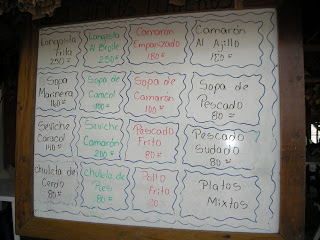 Langosta Frita 250=
Langosta Al Broile 250=
Camarón Empanizado 180=
Camarón Al Ajillo 180=
Sopa Marinera 160=
Sopa de Caracol 100=
Sopa de Camarón 100=
Sopa de Pescado 80=
Seviche Caracol 140=
Seviche Camarón 200=
Pescado Frito 80=
Pescado Sudado 80=
Chuleta de Cerdo 80=
Chuleta de Res 80=
Pollo Frito 80=
Platos Mixtos